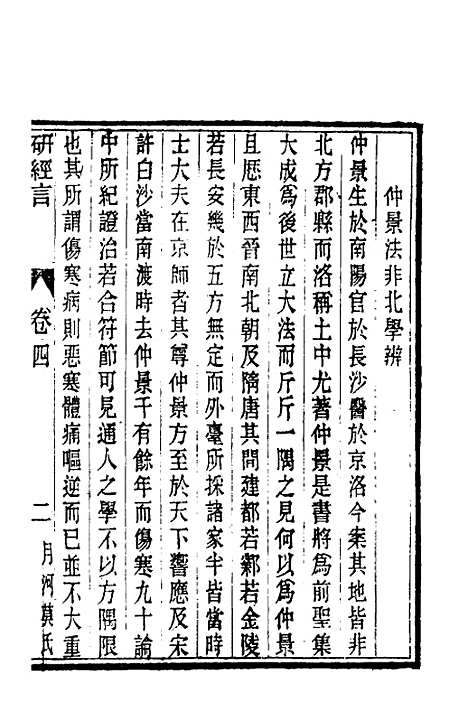 仲景法非北學辨
仲景生於南陽官於長沙醫於京洛今案其地皆非
北方郡縣而洛稱土中尤著仲景是書將為前聖集
大成為後世立大法而斤斤一隅之見何以為仲景
且歷東西晉南北朝及隋唐其間建都若鄴若金陵
若長安幾於五方無定而外臺所採諸家半皆當時
士大夫在京師者其尊仲景方至於天下響應及宋
許白沙當南渡時去仲景千有餘年而傷寒九十論
中所紀證治若合符節可見通人之學不以方隅限
也其所謂傷寒病則惡寒體痛嘔逆而已並不大重
研經言 卷四 二 月河莫氏